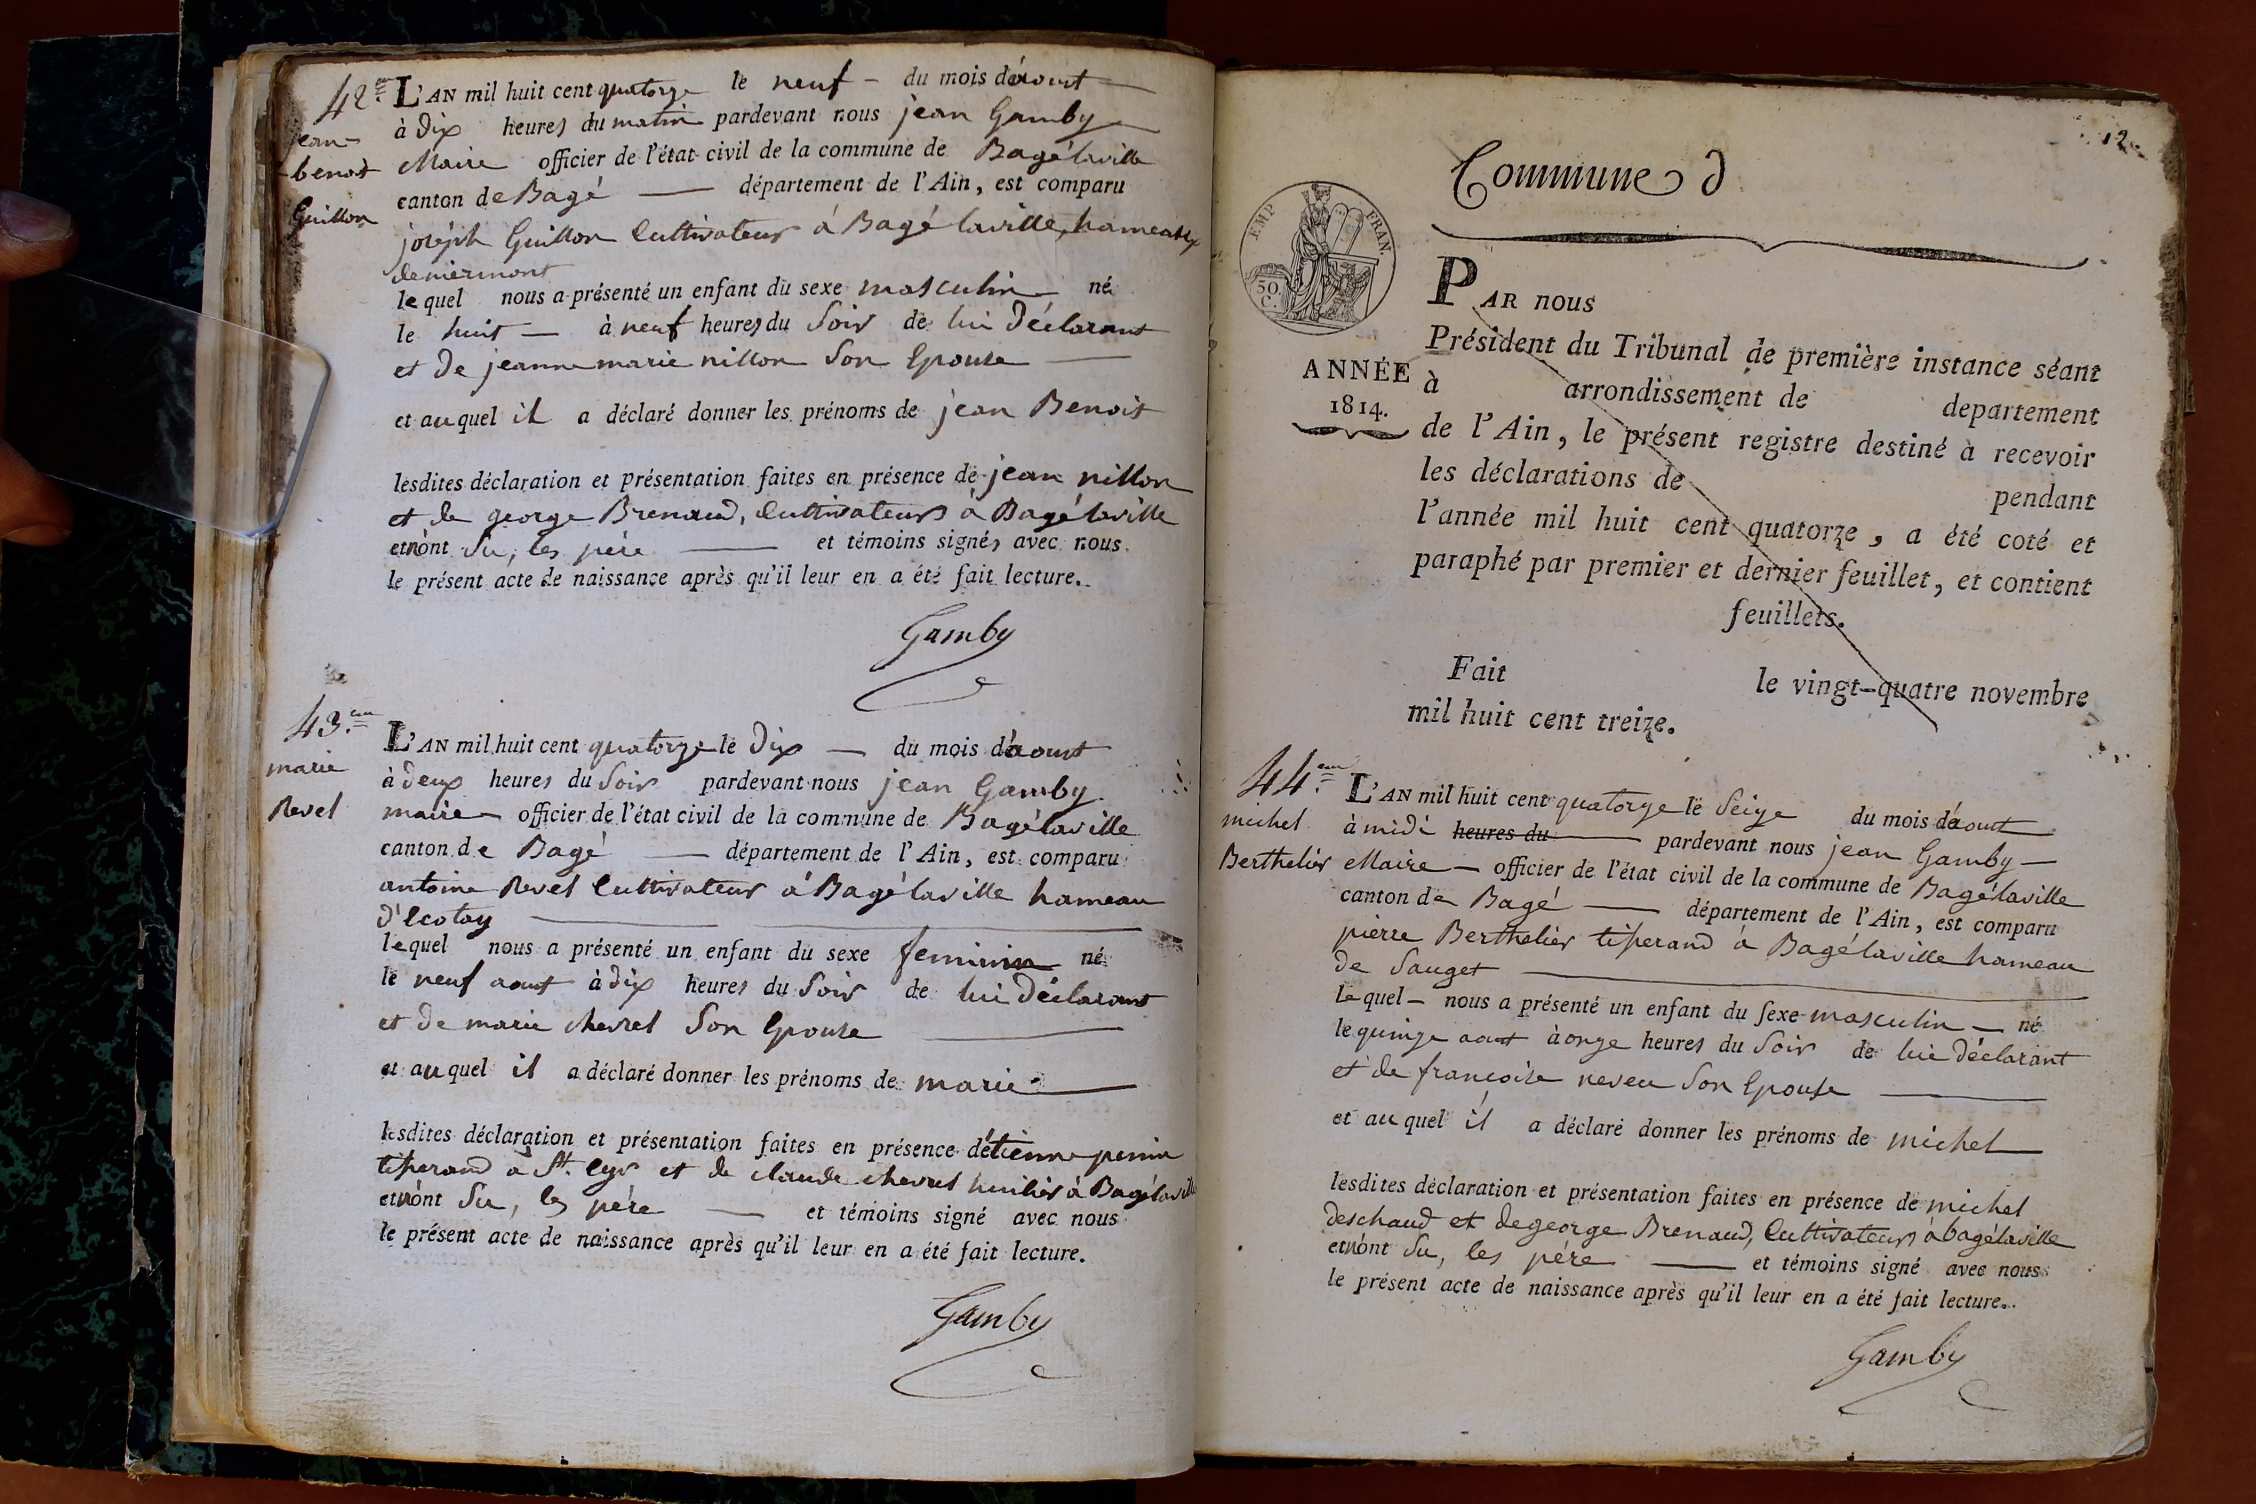 42.em
jean
benoit
Guillon
L'AN mil huit cent quatorze le neuf - du mois d'aoust
à dix heures du matin pardevant nous jean Gamby
Maire officier de l'état civil de la commune de Bagélaville
canton de Bagé département de l'Ain, est comparu
joséph Guillon Cultivateur á Bagé laville, hameau
lequel nous a présenté un enfant du sexe masculin né
le huit - à neuf heures du Soir de lui Déclarant
et De jeanne marie nillon Son Epouse
et auquel il a déclaré donner les prénoms de jean Benoit
lesdites déclaration et présentation faites en présence de jean nillon
et de george Brenaud, Cultivateurs à Bagélaville
et n'ont Su, les père et témoins signés avec nous
le présent acte de naissance après qu'il leur en a été fait lecture.
Gamby
43.em
marie
Revel
L'AN mil huit cent quatorze le Dix - du mois d'aoust
à deux heures du Soir pardevant nous jean Gamby
maire - officier de l'état civil de la commune de Bagélaville
canton de Bagé département de l'Ain, est comparu
antoine Revel Cultivateur á Bagélaville hameau
D'Ecotay
lequel nous a présenté un enfant du sexe feminin né
le neuf aout à dix heures du Soir de lui Déclarant
et de marie chevrel Son Epouse
et auquel il a déclaré donner les prénoms de marie
lesdites déclaration et présentation faites en présence d'étienne
tiserand à St. Cyr et de claude chevrel à Bagélaville
et n'ont Su, les père et témoins signé avec nous
le présent acte de naissance après qu'il leur en a été fait lecture.
Gamby
12
Commune d
EMP FRAN.
50
C.
ANNÉE
1814.
PAR nous
Président du Tribunal de première instance séant
à arrondissement de departement
de l'Ain, le présent registre destiné à recevoir
les déclarations de pendant
l'année mil huit cent quatorze, a été coté et
paraphé par premier et dernier feuillet, et contient
feuillets.
Fait le vingt-quatre novembre
mil huit cent treize.
44.em
michel
Berthelier
L'AN mil huit cent quatorze le Seize du mois d'aout
à midi heures du pardevant nous jean Gamby -
Maire - officier de l'état civil de la commune de Bagélaville
canton de Bagé département de l'Ain, est comparu
pierre Berthelier tiserand à Bagélaville hameau
de Sauget
lequel - nous a présenté un enfant du sexe masculin - né
le quinze aout à onze heures du Soir de lui déclarant
et de francoise neveu Son Epouse
et auquel il a déclaré donner les prénoms de michel
lesdites déclaration et présentation faites en présence de michel
deschaud et de george Brenaud, Cultivateurs à bagélaville
et n'ont Su, les père et témoins signé avec nous
le présent acte de naissance après qu'il leur en a été fait lecture.
Gamby